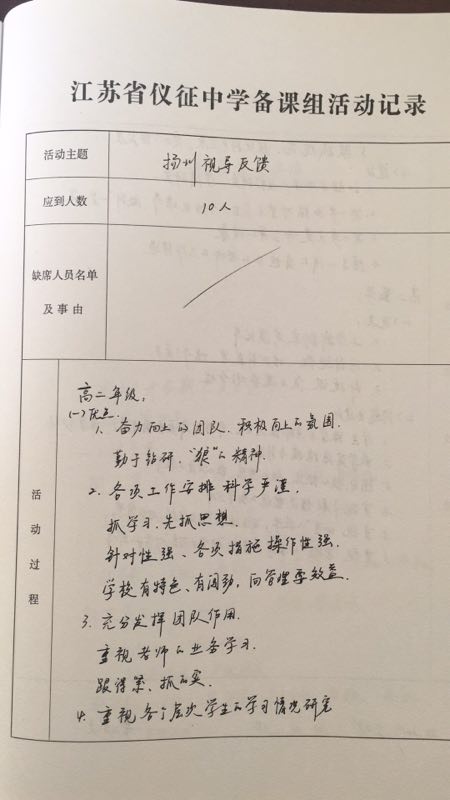 江苏省仪征中学备课组活动记录
活动主题 扬州视导反馈
应到人数 10人
缺席人员名单
及事由
活动过程
高二年级:
(一)优点.
1、奋力向上的团队、积极向上的氛围.
勤于钻研、"狠"的精神.
2、各项工作安排科学严谨,
抓学习,先抓思想.
针对性强、各项措施操作性强.
学校有特色、有闯劲,向管理要效益.
3、充分发挥团队作用.
重视老师的业务学习.
跟得紧、抓的实.
4、重视各个层次学生的学习情况研究